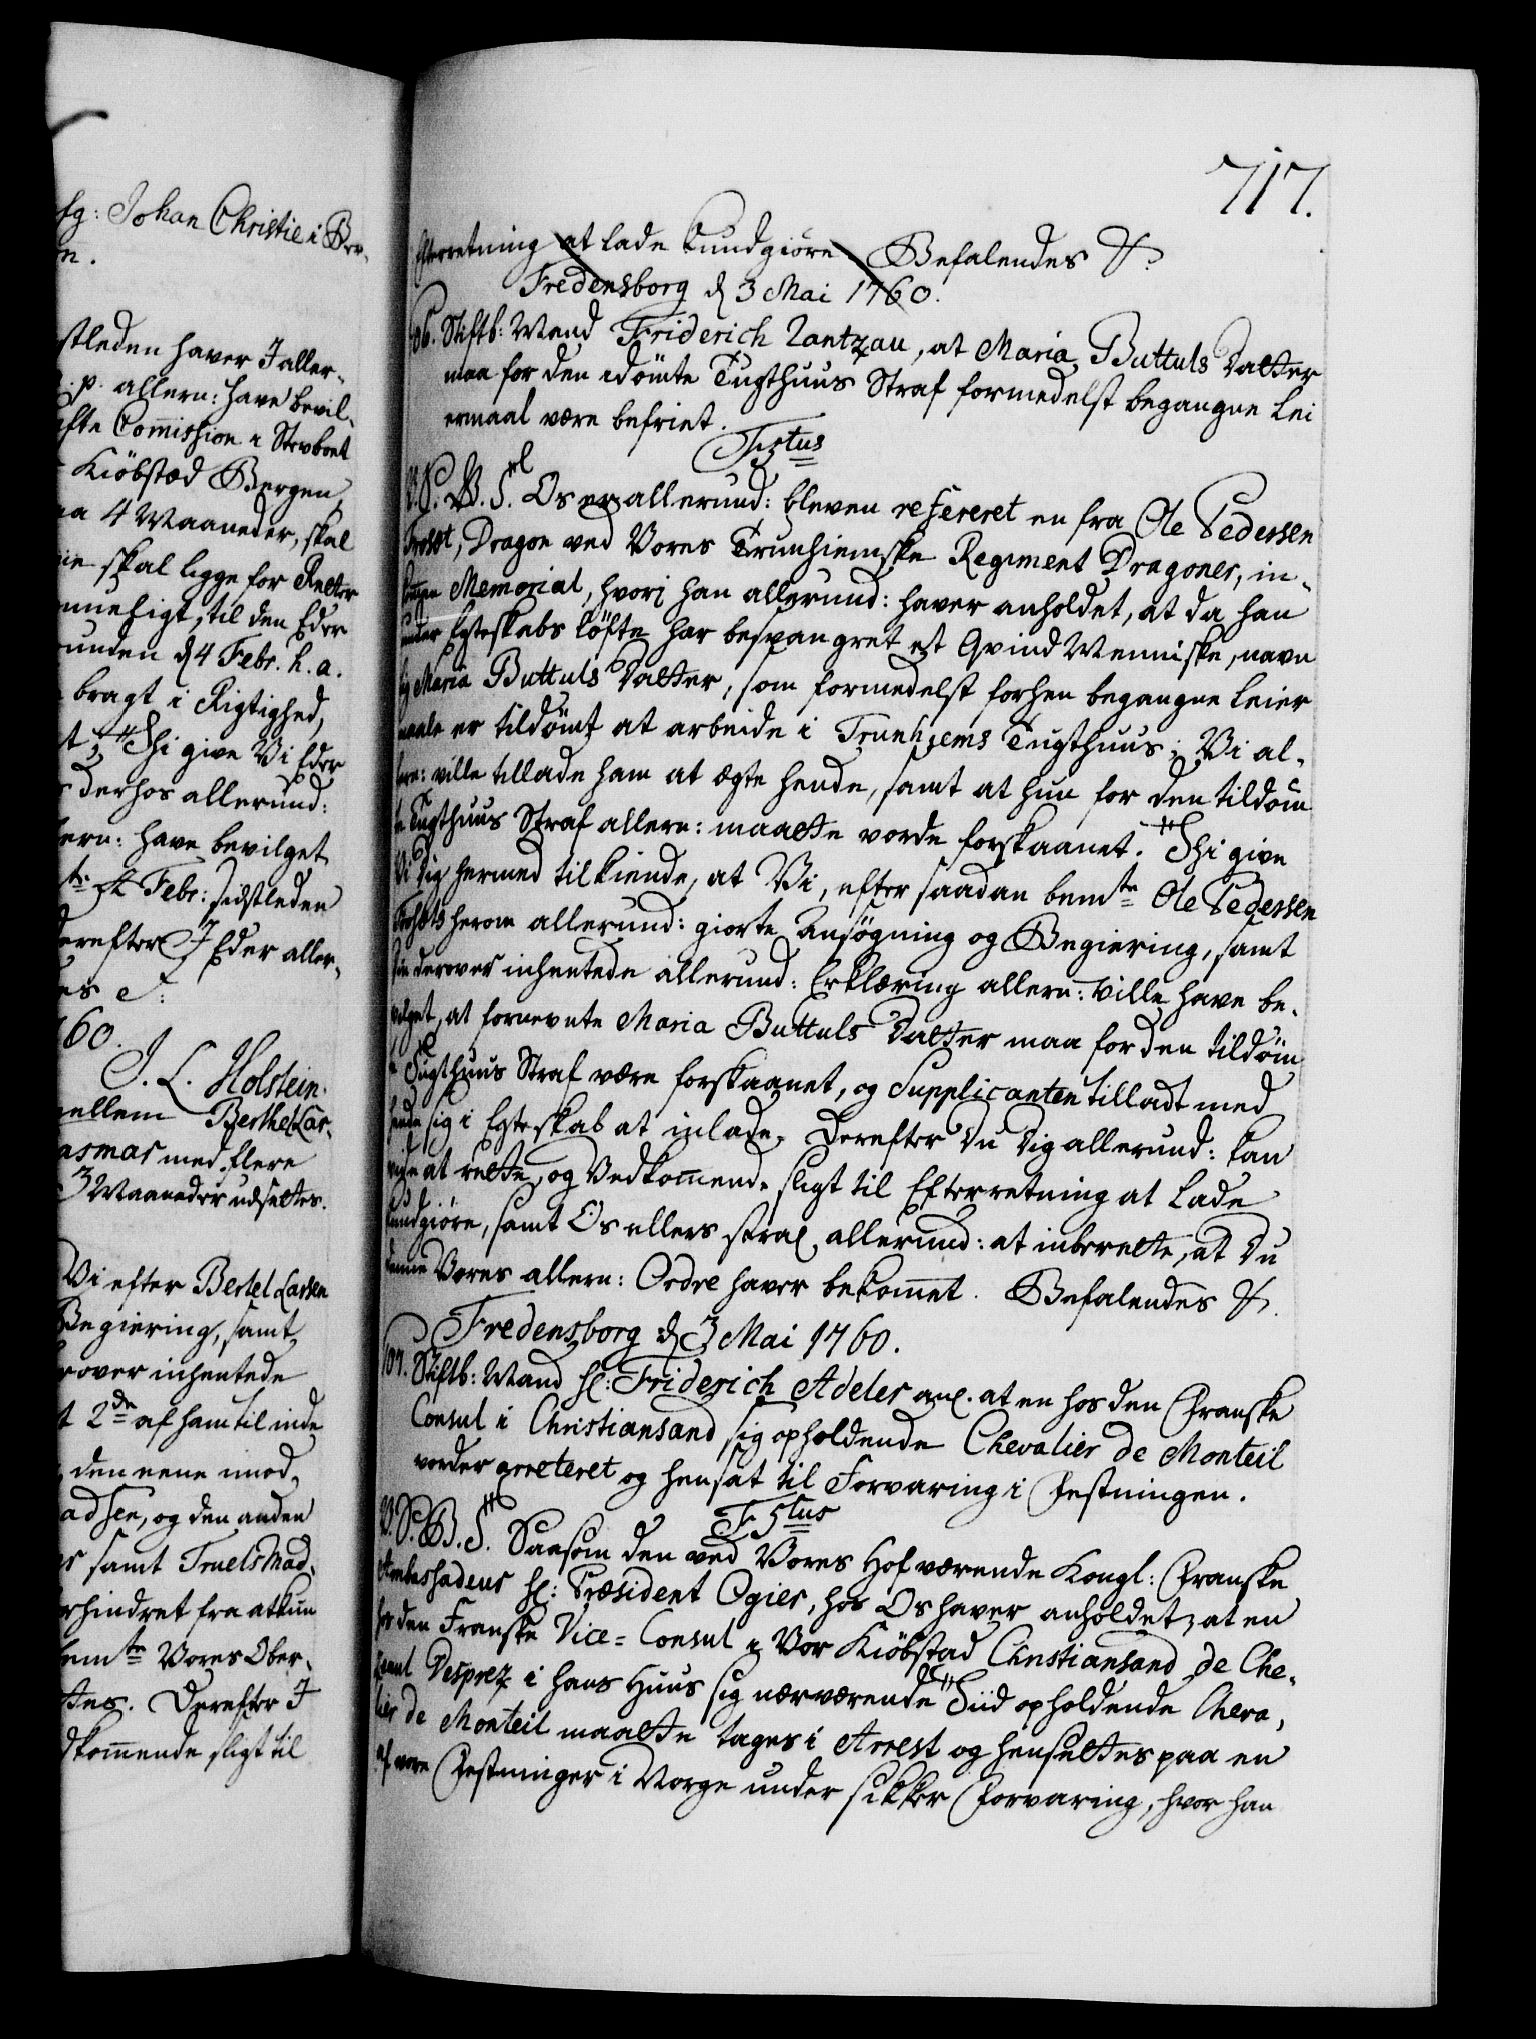 sg: Johan Christie i Ber-
n.
stleden haver I aller-
p. allern: have bevil-
Commission i Stervboet
Kiöbstæd Bergen,
aa 4 Maaneder, skal
skal ligge for Retter
til den Eder
unden d 4 Febr. h. a.
bragt i Rigtighed,
t; Thi give Vi Eder
derhos allerund:
ern: have bevilget
Febr: sidstleden
derefter I Eder aller-
es
60.
J. L. Holstein.
mellem Berthel Lar-
asmas med flere
3 Maaneder udsættes.
Vi efter Bertel Larsen
Begiering, samt
rover inhentede
t 2de af ham til inde
den eene imod
adsen, og den anden
samt Truels Mad-
rhindret fra at kun
bemte Vores Ober-
ttes. Derefter I
dkommende sligt til
717.
Efterretning at lade kundgiöre. Befalendes &.
Fredensborg d 3 Mai 1760.
106. Stiftb: Mand Friderich Rantzau, at Maria Buttuls Datter
maa for den idömte Tugthuus Straf formedelst begangne Lei
ermaal være befriet.
F 5tus
V. S. G. T. Os er allerund: bleven refereret en fra Ole Pedersen
Dragon ved Vores Trunhiemske Regiment Dragoner, in-
kommen Memorial, hvori han allerund: haver anholdet, at da han
under Egteskabs löfte har besvangret et Qvind Menniske, navn
lig Maria Buttuls Datter, som formedelst forhen begangne Leier
maale er tildömt at arbeide i Trunhiems Tugthuus; Vi al-
lern: ville tillade ham at ægte hende, samt at hun for den tildöm
te Tugthuus Straf allern: maatte vorde forskaanet. Thi give
Vi dig hermed tilkiende, at Vi, efter saadan bemte Ole Pedersen
herom allerund: giorte Ansögning og Begiering, samt
din derover inhentede allerund: Erklæring allern: ville have be-
vilget, at fornevnte Maria Buttuls Datter maa for den tildöm
te Tugthuus Straf være forskaanet, og Supplicanten tilladt med
hende sig i Egteskab at inlade. Derefter Du Dig allerund: kan
vide at rette, og Vedkommend. sligt til Efterretning at lade
kundgiöre, samt Os ellers strax allerund: at inberette, at Du
denne Vores allern: Ordre haver bekommet. Befalendes &.
Fredensborg d 3 Mai 1760.
107. Stiftb: Mand Hr: Friderich Adeler anl. at en hos den Franske
Consul i Christiansand sig opholdende Chevalier de Monteil
vorder arreteret og hensat til Forvaring i Festningen.
F 5tus
V. S. G. T. Saasom den ved Vores Hof værende Kongl: Franske
Ambassadeur Hr: Præsident Ogier, hos Os haver anholdet, at en
hos den Franske Vice-Consul i Vor Kiöbstad Christiansand de Che-
zeaul Desprez i hans Huus sig nærværende Tiid opholdende Cheva-
lier de Monteil maatte tages i Arrest og hensættes paa en
af vore Festninger i Norge under sikker Forvaring, hvor han